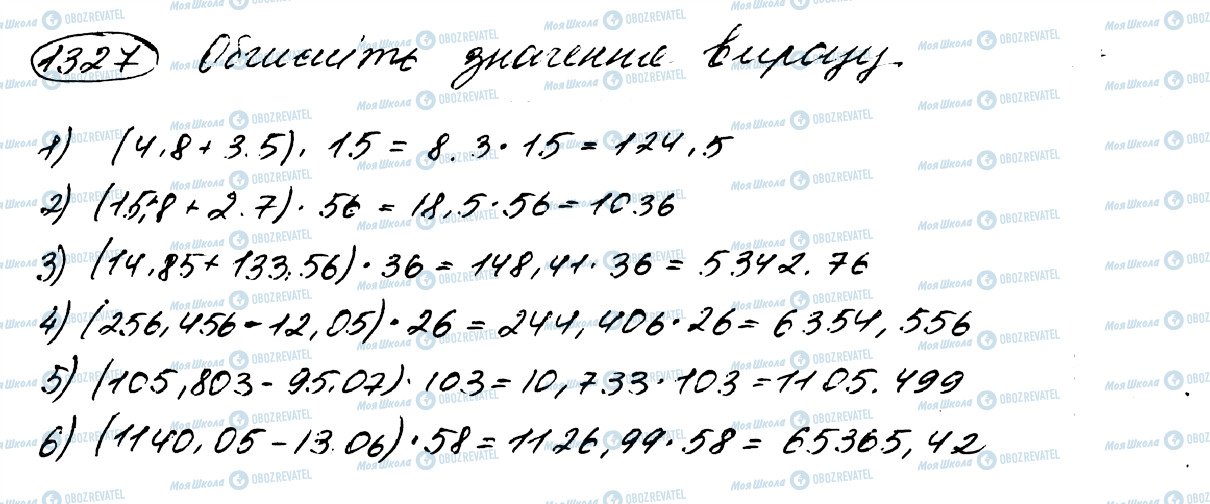 1327 Обчисліть значення виразу.
1) (4,8 + 3.5) · 15 = 8.3 · 15 = 124,5
2) (15,8 + 2.7) · 56 = 18,5 · 56 = 1036
3) (14,85 + 133,56) · 36 = 148,41 · 36 = 5342.76
4) (256,456 - 12,05) · 26 = 244,406 · 26 = 6354,556
5) (105,803 - 95.07) · 103 = 10,733 · 103 = 1105.499
6) (1140,05 - 13.06) · 58 = 1126,99 · 58 = 65365,42